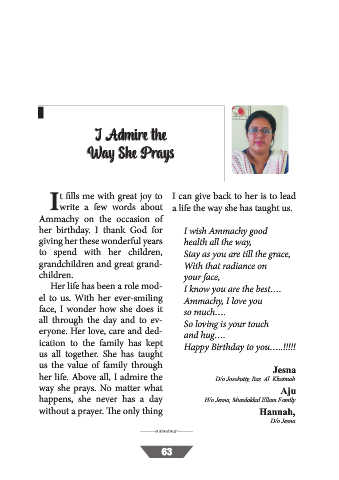 I Admire the
Way She Prays
It fills me with great joy to
write a few words about
Ammachy on the occasion of
her birthday. I thank God for
giving her these wonderful years
to spend with her children,
grandchildren and great grand-
children.
Her life has been a role mod-
el to us. With her ever-smiling
face, I wonder how she does it
all through the day and to ev-
eryone. Her love, care and ded-
ication to the family has kept
us all together. She has taught
us the value of family through
her life. Above all, I admire the
way she prays. No matter what
happens, she never has a day
without a prayer. The only thing
I can give back to her is to lead
a life the way she has taught us.
I wish Ammachy good
health all the way,
Stay as you are till the grace,
With that radiance on
your face,
I know you are the best….
Ammachy, I love you
so much….
So loving is your touch
and hug….
Happy Birthday to you…..!!!!!
Jesna
D/o Joschutty, Raz Al Khaimah
Aju
H/o Jesna, Mundakkal Illam Family
Hannah,
D/o Jesna
63